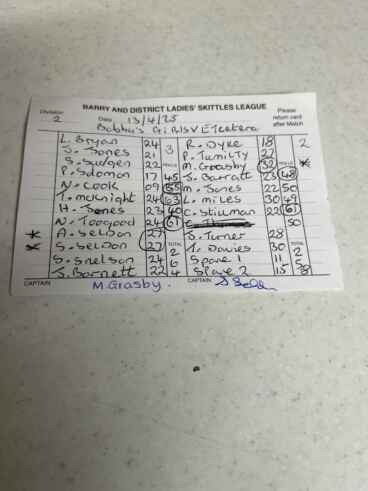 BARRY AND DISTRICT LADIES' SKITTLES LEAGUE
Division 2 Date 13/4/25 Please return card after Match
Bobby's GiRlS V ETcetera
L. Bryan 24 3 R. Dyke 18 2
J. Jones 21 P. Tumilty 22
S. Sudgen 22 ROLLS M. Greasby 32 ROLLS *
P. Solomon 17 45 J. Barratt 23 48
N. Cook 09 55 M. Jones 22 50
T. McKnight 24 63 L. miles 30 49
H. Jones 23 40 C. Stillman 22 61
N. Toogood 24 61 50
* A. Seldon 27 S. Turner 28
* S. Seldon 27 TOTAL T. Davies 30 TOTAL
S. Snelson 24 2 Spare 1 11 2
J. Barnett 22 6 4 Spare 2 15 5 8
CAPTAIN M. Grasby. CAPTAIN